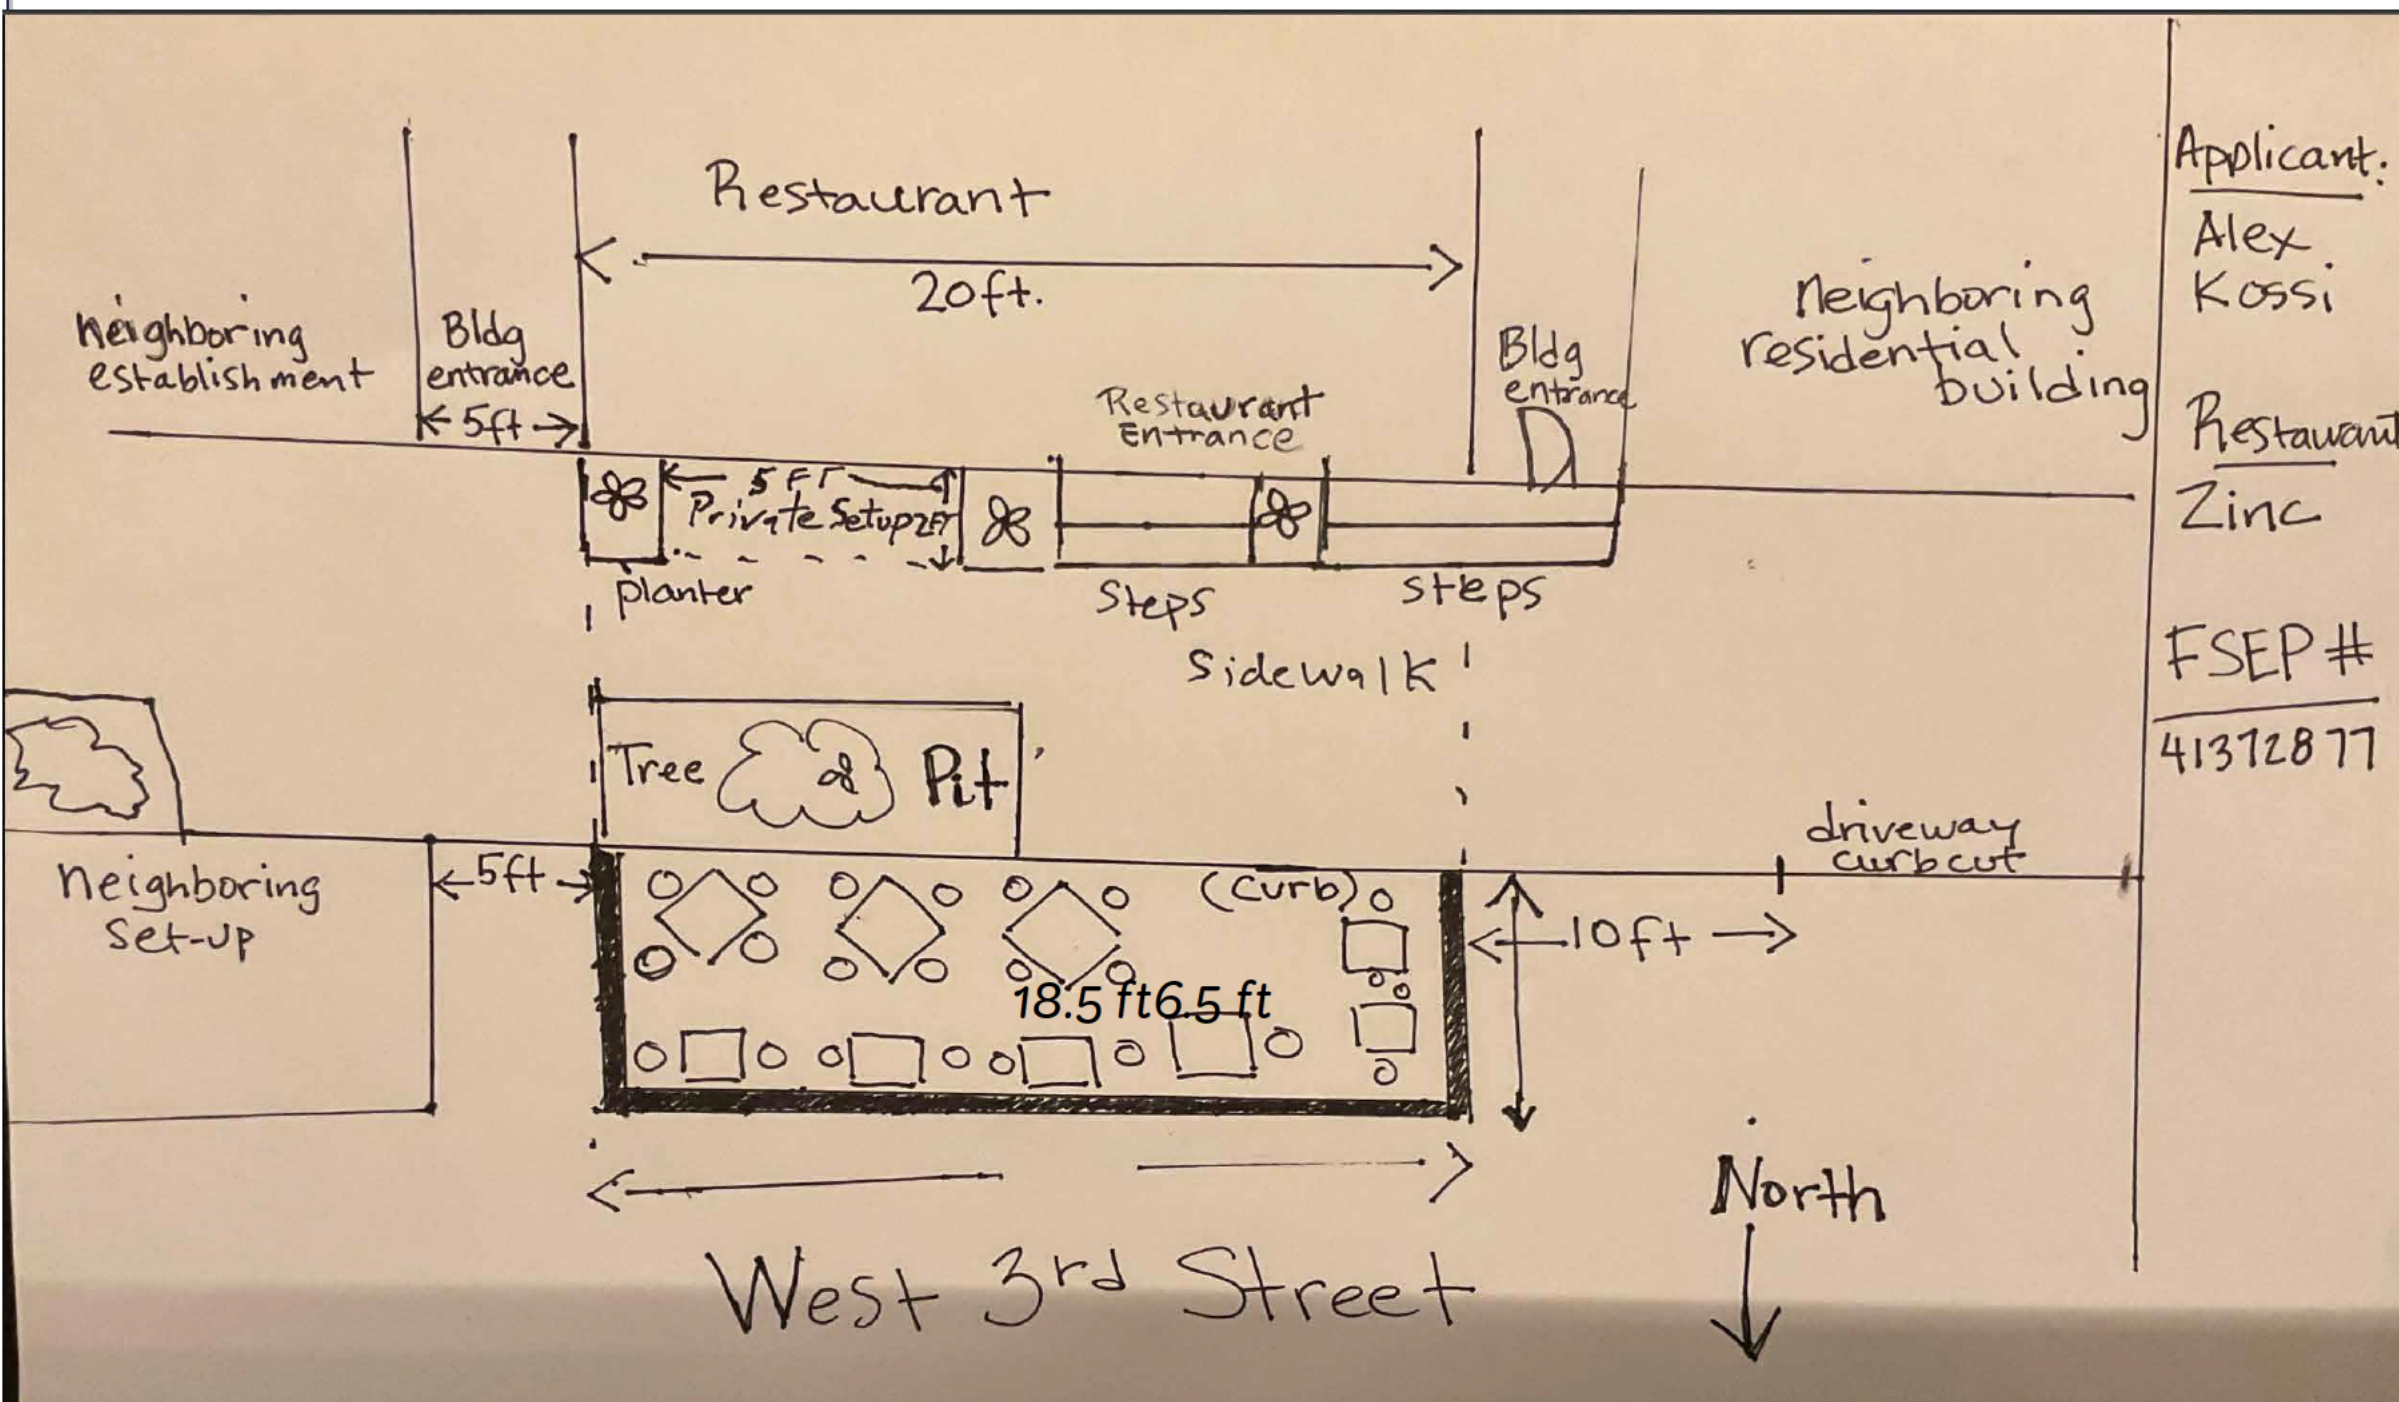 Restaurant
20ft.
neighboring
establishment
Bldg
entrance
5ft
Restaurant
Entrance
Bldg
entrance
Neighboring
residential
building
5 FT
Private Setup 2FT
planter
Steps
steps
Sidewalk
Tree Pit
driveway
curbcut
Neighboring
Set-up
5ft
(curb)
10ft
18.5 ft6.5 ft
North
West 3rd Street
Applicant:
Alex
Kossi
Restaurant
Zinc
FSEP #
41372877